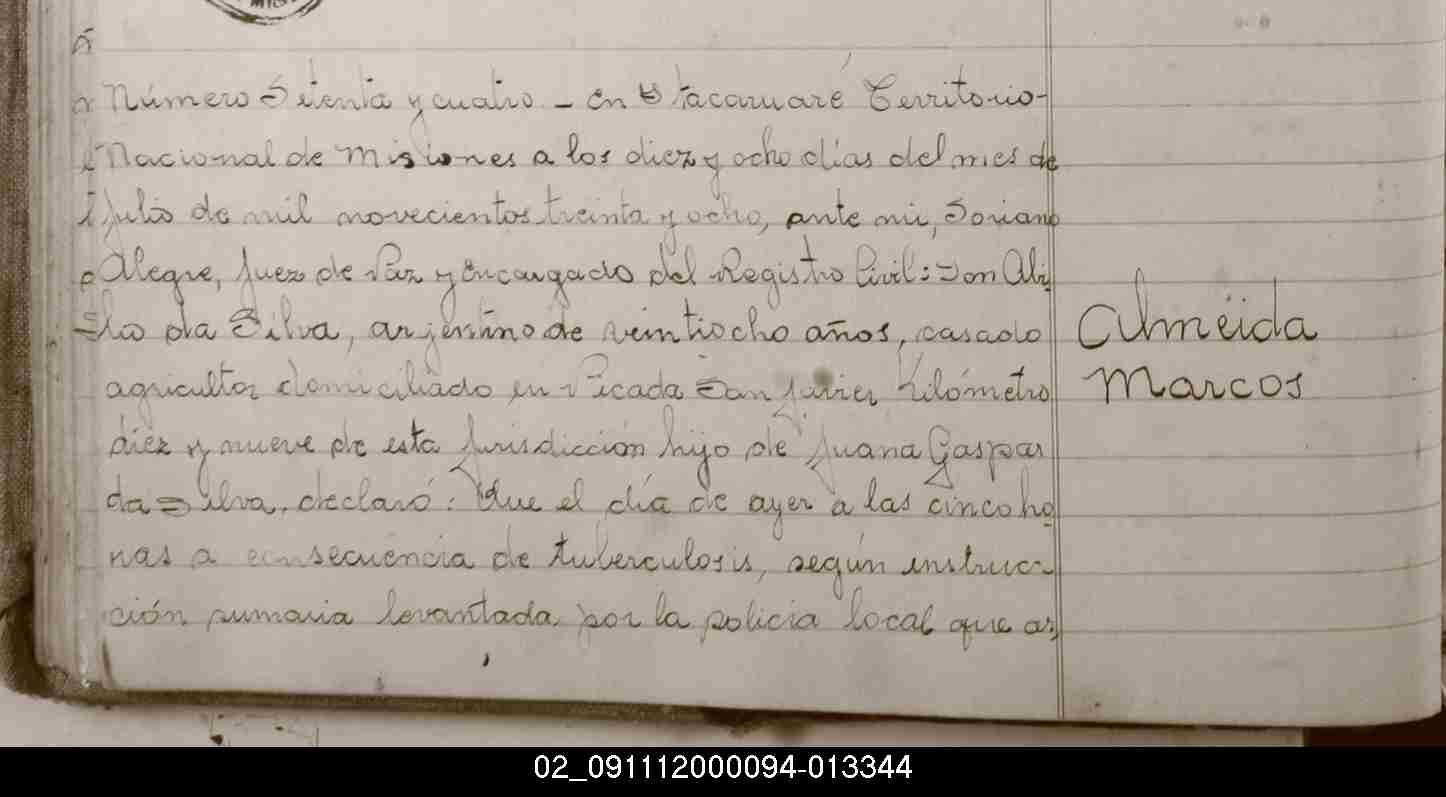 Número Setenta y cuatro - En Itacaruaré Territorio-
Nacional de Misiones a los diez y ocho días del mes de
julio de mil novecientos treinta y ocho, ante mi, Soriano
Alegre, Juez de Paz y Encargado del Registro Civil: Don Abi-
lio da Silva, argentino de veintiocho años, casado
agricultor domiciliado en Picada San Javier Kilómetro
diez y nueve de esta jurisdicción hijo de Juana Gaspar
da Silva, declaró: Que el día de ayer a las cinco ho
ras a consecuencia de tuberculosis, según instruc-
ción sumaria levantada por la policia local que ar
Almeida
Marcos
02_091112000094-013344